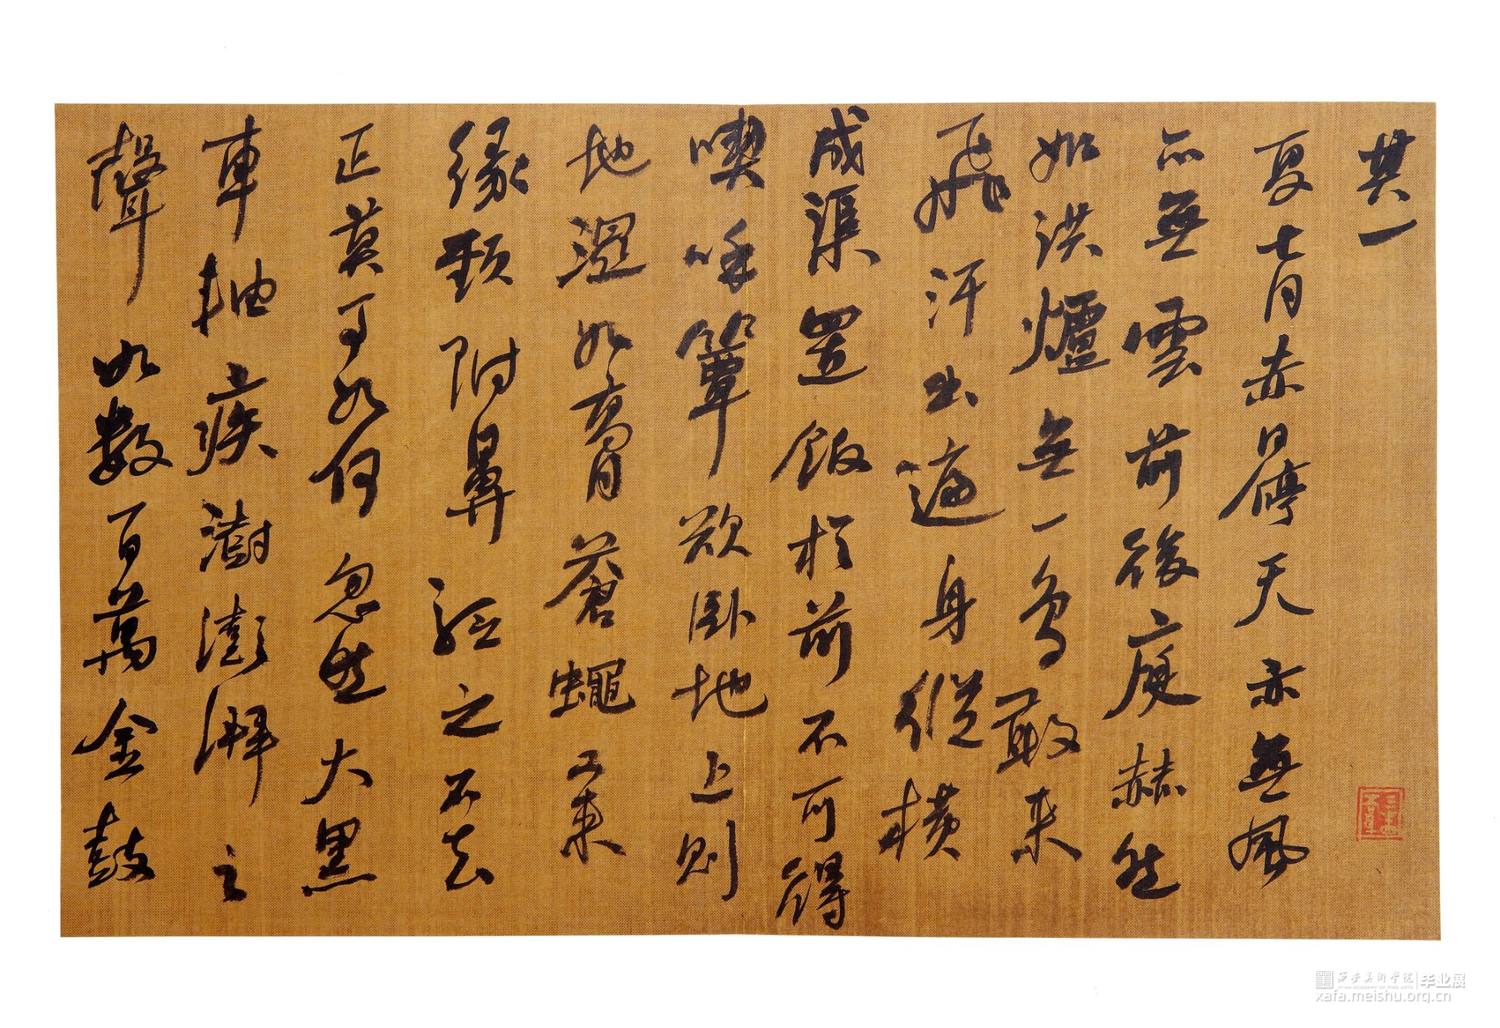 其一
夏七月赤日停天亦無風
亦無雲前後庭赫然
如洪爐無一鳥敢來
飛汗出遍身縱橫
成渠置飯於前不可得
喫呼簟欲臥地上則
地濕如膏蒼蠅又來
緣頸附鼻驅之不去
正莫可如何忽然大黑
車軸疾澍澎湃之
聲如數百萬金鼓
西安美术学院 毕业展
xafa.meishu.org.cn